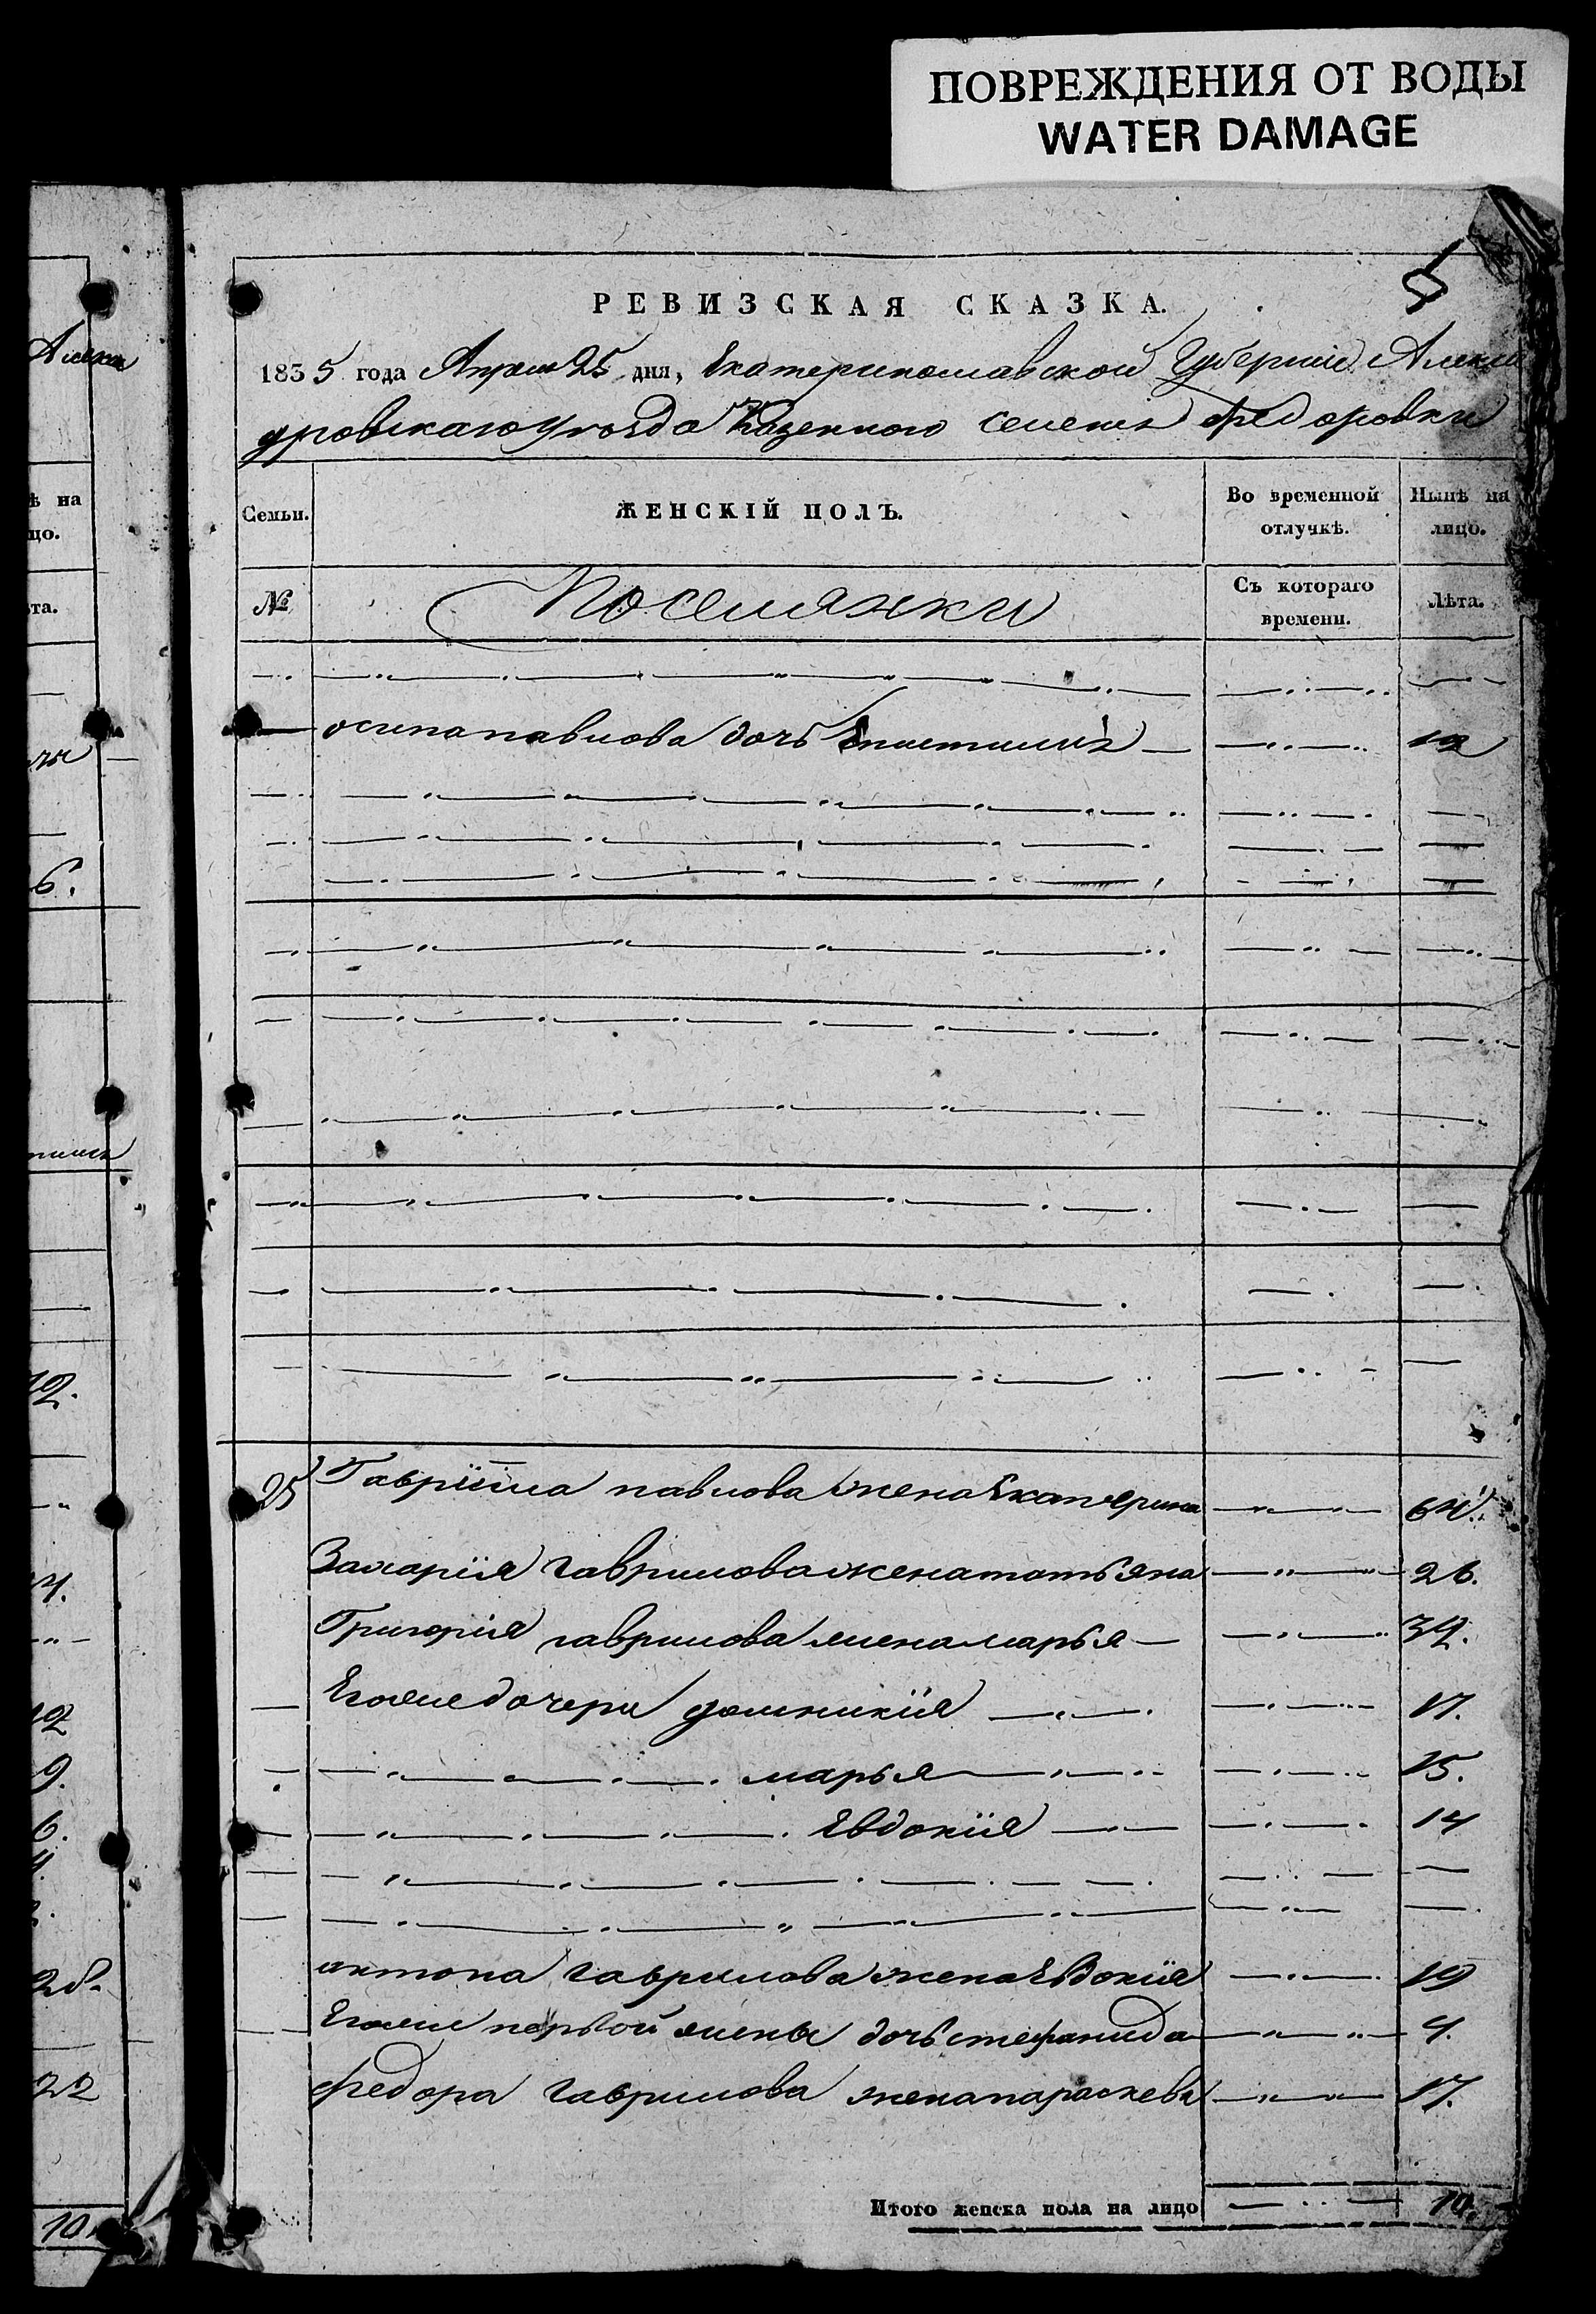 ПОВРЕЖДЕНИЯ ОТ ВОДЫ
WATER DAMAGE
5
РЕВИЗСКАЯ СКАЗКА.
1835 года Апреля 25 дня, Екатеринославской Губернии Алексан
дровскаго уезда Казенного селения Федоровки
Семьи. ЖЕНСКІЙ ПОЛЪ. Во временной отлучкѣ. Нынѣ на лицо.
№ Поселянки Съ котораго времени. Лѣта.
осипа павлова дочь 12
25 Гавріила павлова жена Екатерина 64.
Захарія гаврилова жена татьяна 26.
Григорія гаврилова жена марья 32.
Егоже дочери домникія 17.
марья 15.
Евдокія 14
антона гаврилова жена Евдокія 19
Егоже первой жены дочь стефанида 4.
федора гаврилова жена параскева 17.
Итого женска пола на лицо 10.
ѣ на
цо.
та.
6.
12.
4.
12
9.
6.
4.
22
10